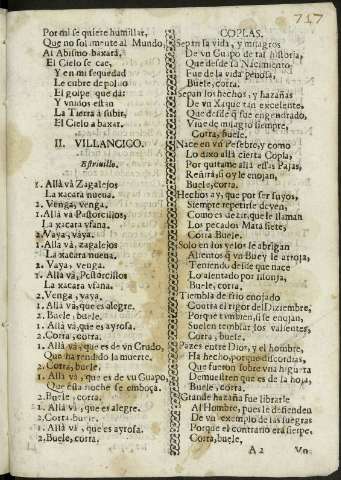 717
Por mi se quiere humillar,
Que no solamente al Mundo,
Al Abismo baxarà,
El Cielo se cae,
Y en mi sequedad
Le cubre de polvo
El golpe que dàr
Y vnidos estan
La Tierra à subir,
El Cielo a baxar.
II. VILLANCICO.
Estrivillo.
1. Allà và Zagalejos
La xacara nueva.
2. Venga, venga.
1. Allà và Pastorcillos,
La xacara vfana.
2. Vaya, vaya.
1. Allà và, zagalejos
La xacara nueva.
2. Vaya, venga.
1. Allà và, Pastorcillos
La xacara vfana.
2. Venga, vaya.
1. Allà và, que es alegre.
2. Buele, buele.
1. Allà và, que es ayrosa.
2. Corra, corra.
1. Allà và, que es de vn Crudo,
Que ha rendido la muerte.
2. Corra, buele.
1. Allà và, que es de vu Guapo,
Que esta noche se emboça.
2. Buele, corra.
1. Allà và, que es alegre.
2. Corra, buele.
1. Allà và, que es ayrosa.
2. Buele, corra.
COPLAS.
Sepan la vida, y milagros
De vn Guapo de tal historia,
Que desde su Nacimiento
Fue de la vida penosa,
Buele, corra.
Sepan los hechos, y hazañas
De vn Xaque tan excelente,
Que desde q̃ fue engendrado,
Viue de milagro siempre,
Corra, buele.
Nace en vn Pesebre, y como
Lo dixo allà cierta Copla,
Por quitame allà essas Pajas,
Reñirà, si oy le enojan,
Buele, corra.
Hechos ay, que por ser suyos,
Siempre repetirse deven,
Como es dezir, que le llaman
Los pecados Mata siete,
Corra Buele.
Solo en los yelos le abrigan
Alientos q̃ vn Buey le arroja,
Teniendo desde que nace
Lo alentado por lisonja,
Buele, corra.
Tiembla de frio enojado
Contra el rigor del Diziembre,
Porque tambien, si se enojan,
Suelen temblar los valientes,
Corra, buele.
Pazes entre Dios, y el hombre,
Ha hecho, porque discordias,
Que fueron sobre vna higuera
Demuestren que es de la hoja,
Buele, corra.
Grande hazaña fue librarle
Al Hombre, pues le defienden
De vn exemplo de las suegras
Porque el contrario era sierpe,
Corra, buele,
A 2 Vn